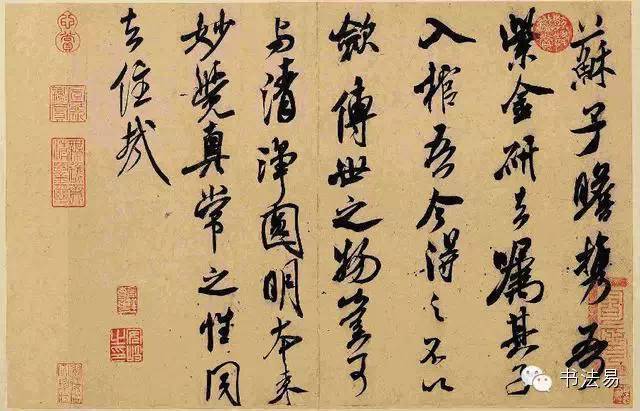 蘇子瞻携吾
紫金研去嘱其子
入棺吾今得之不以
斂傳世之物豈可
与清淨圓明本来
妙覺真常之性同
去住哉
书法易